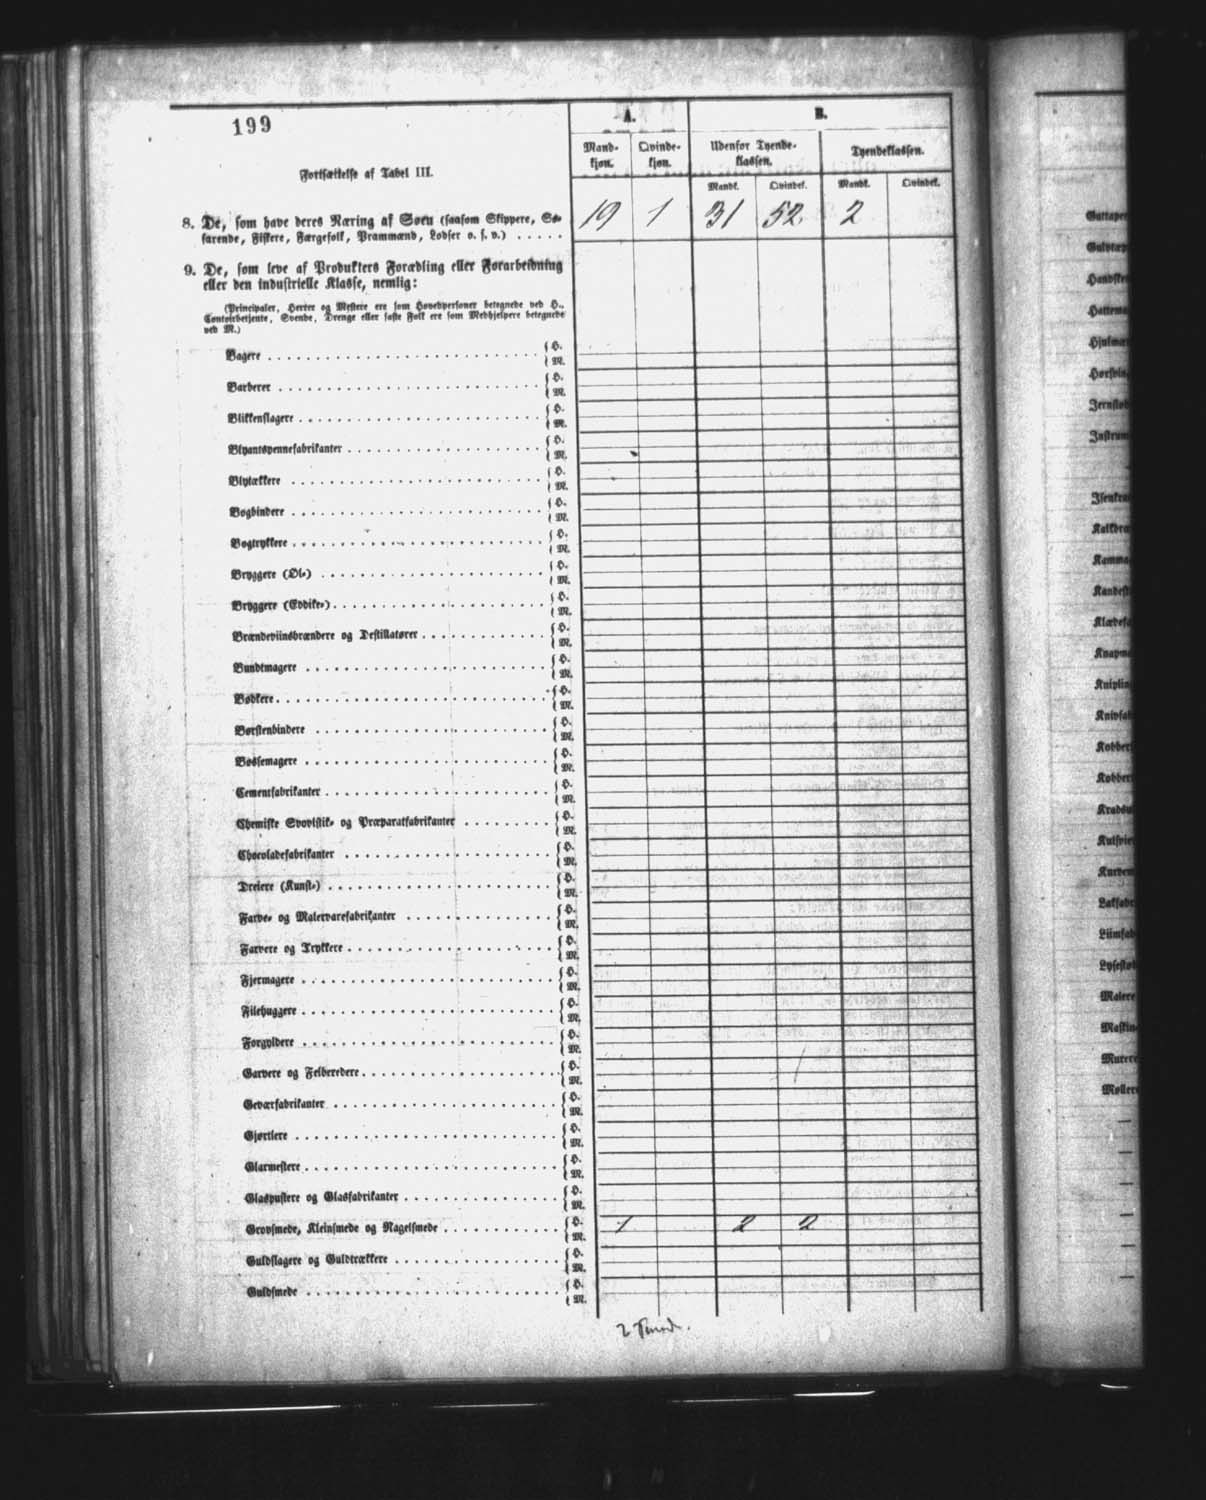 199
A.
B.
Fortsættelse af Tabel III.
Mand-
kjøn.
Qvinde-
kjøn.
Udenfor Tyende-
klassen.
Tyendeklassen.
Mandk.
Qvindek.
Mandk.
Qvindek.
8. De, som have deres Næring af Søen (saasom Skippere, Sø-
farende, Fiskere, Færgefolk, Prammænd, Lodser o. s. v.) . . . . . 19 1 31 52 2
9. De, som leve af Produkters Forædling eller Forarbeidning
eller den industrielle Klasse, nemlig:
(Principaler, Herrer og Mestere ere som Hovedpersoner betegnede ved H.,
Contoirbetjente, Svende, Drenge eller faste Folk ere som Medhjelpere betegnede
ved M.)
Bagere { H.
{ M.
Barberer { H.
{ M.
Blikkenslagere { H.
{ M.
Blyantspennefabrikanter { H.
{ M.
Blytækkere { H.
{ M.
Bogbindere { H.
{ M.
Bogtrykkere { H.
{ M.
Bryggere (Øl-) { H.
{ M.
Bryggere (Eddike-) { H.
{ M.
Brændeviinsbrændere og Destillatører { H.
{ M.
Bundtmagere { H.
{ M.
Bødkere { H.
{ M.
Børstenbindere { H.
{ M.
Bøssemagere { H.
{ M.
Cementfabrikanter { H.
{ M.
Chemiske Svovlstik- og Præparatfabrikanter { H.
{ M.
Chocoladefabrikanter { H.
{ M.
Dreiere (Kunst-) { H.
{ M.
Farve- og Malervarefabrikanter { H.
{ M.
Farvere og Trykkere { H.
{ M.
Fjermagere { H.
{ M.
Filehuggere { H.
{ M.
Forgyldere { H.
{ M.
Garvere og Felberedere { H.
{ M.
Geværfabrikanter { H.
{ M.
Gjørtlere { H.
{ M.
Glarmestere { H.
{ M.
Glaspustere og Glasfabrikanter { H.
{ M.
Grovsmede, Kleinsmede og Nagelsmede { H. 1 2 2
{ M.
Guldslagere og Guldtrækkere { H.
{ M.
Guldsmede { H.
{ M.